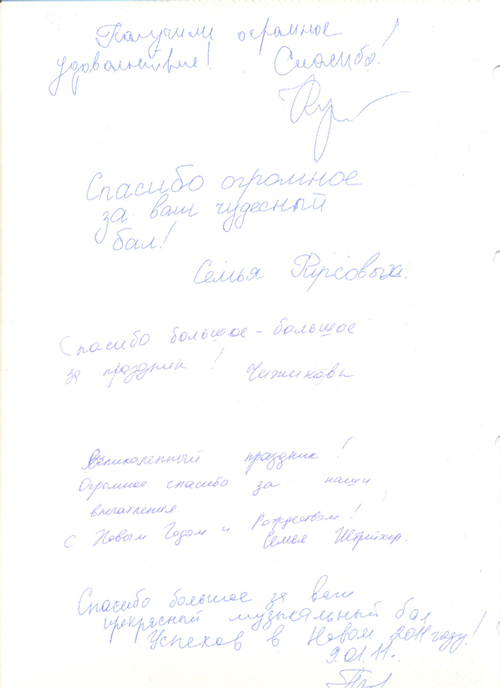 Получили огромное
удовольствие! Спасибо!
Спасибо огромное
за ваш чудесный
бал!
Семья
Спасибо большое-большое
за праздник! Чижиковы
Великолепный праздник!
Огромное спасибо за наши
впечатления
С Новым Годом и Рождеством!
Семья
Спасибо большое за ваш
прекрасный музыкальный бал
Успехов в Новом 2011 году!
9.01.11г.